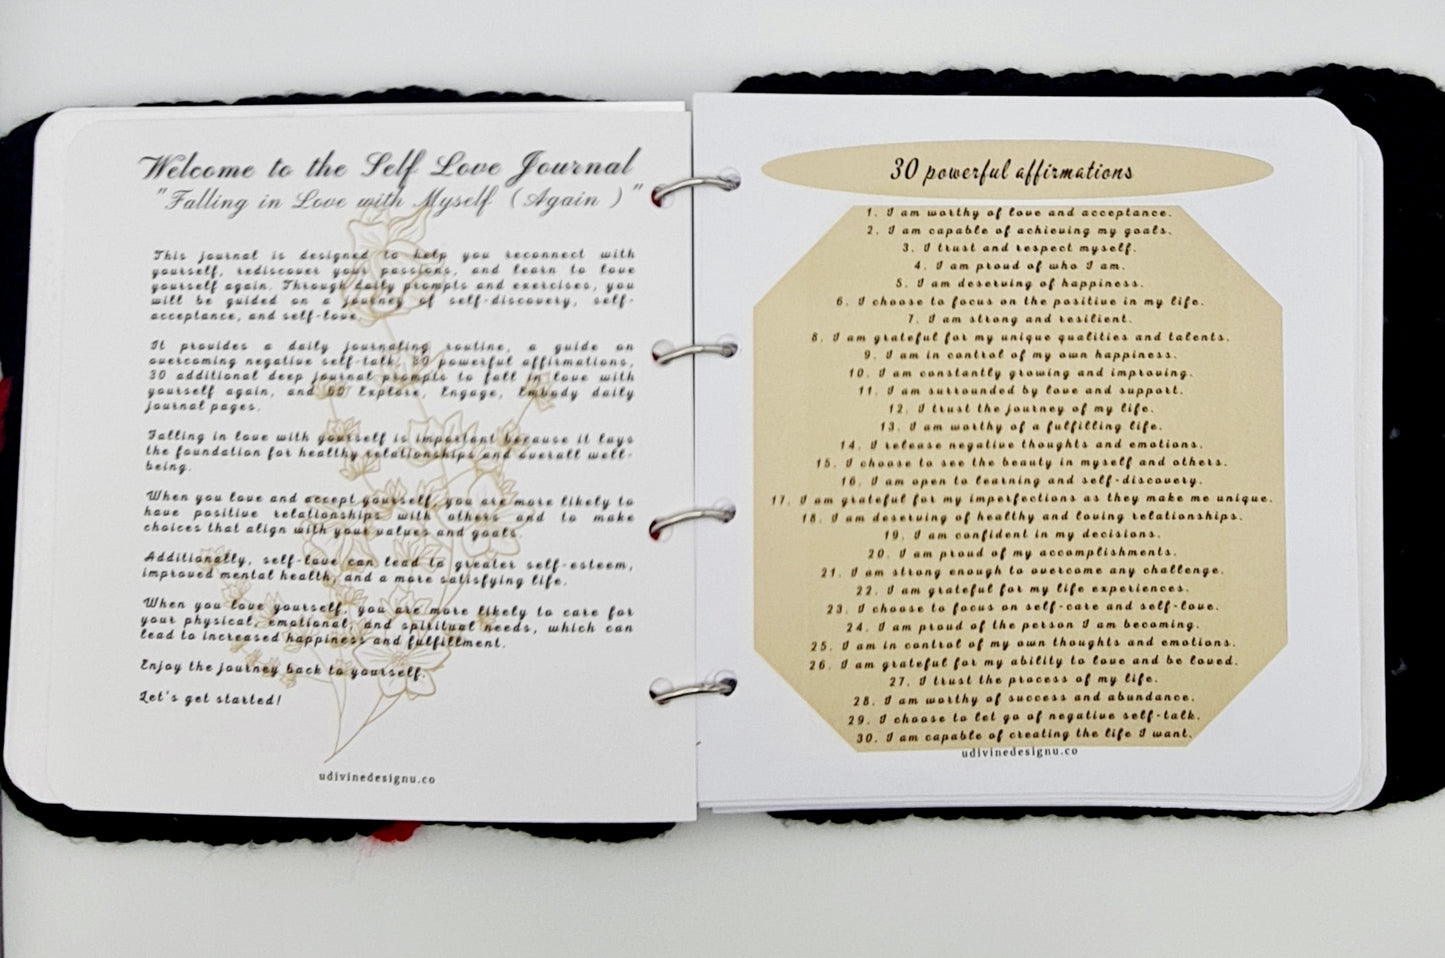 Welcome to the Self Love Journal
"Falling in Love with Myself (Again )"
This journal is designed to help you reconnect with
yourself, rediscover your passions, and learn to love
yourself again. Through daily prompts and exercises, you
will be guided on a journey of self-discovery, self-
acceptance, and self-love.
It provides a daily journaling routine, a guide on
overcoming negative self-talk, 30 powerful affirmations,
30 additional deep journal prompts to fall in love with
yourself again, and 60 Explore, Engage, Embody daily
journal pages.
Falling in love with yourself is important because it lays
the foundation for healthy relationships and overall well-
being.
When you love and accept yourself, you are more likely to
have positive relationships with others and to make
choices that align with your values and goals.
Additionally, self-love can lead to greater self-esteem,
improved mental health, and a more satisfying life.
When you love yourself, you are more likely to care for
your physical, emotional, and spiritual needs, which can
lead to increased happiness and fulfillment.
Enjoy the journey back to yourself.
Let's get started!
udivinedesignu.co
30 powerful affirmations
1. I am worthy of love and acceptance.
2. I am capable of achieving my goals.
3. I trust and respect myself.
4. I am proud of who I am.
5. I am deserving of happiness.
6. I choose to focus on the positive in my life.
7. I am strong and resilient.
8. I am grateful for my unique qualities and talents.
9. I am in control of my own happiness.
10. I am constantly growing and improving.
11. I am surrounded by love and support.
12. I trust the journey of my life.
13. I am worthy of a fulfilling life.
14. I release negative thoughts and emotions.
15. I choose to see the beauty in myself and others.
16. I am open to learning and self-discovery.
17. I am grateful for my imperfections as they make me unique.
18. I am deserving of healthy and loving relationships.
19. I am confident in my decisions.
20. I am proud of my accomplishments.
21. I am strong enough to overcome any challenge.
22. I am grateful for my life experiences.
23. I choose to focus on self-care and self-love.
24. I am proud of the person I am becoming.
25. I am in control of my own thoughts and emotions.
26. I am grateful for my ability to love and be loved.
27. I trust the process of my life.
28. I am worthy of success and abundance.
29. I choose to let go of negative self-talk.
30. I am capable of creating the life I want.
udivinedesignu.co